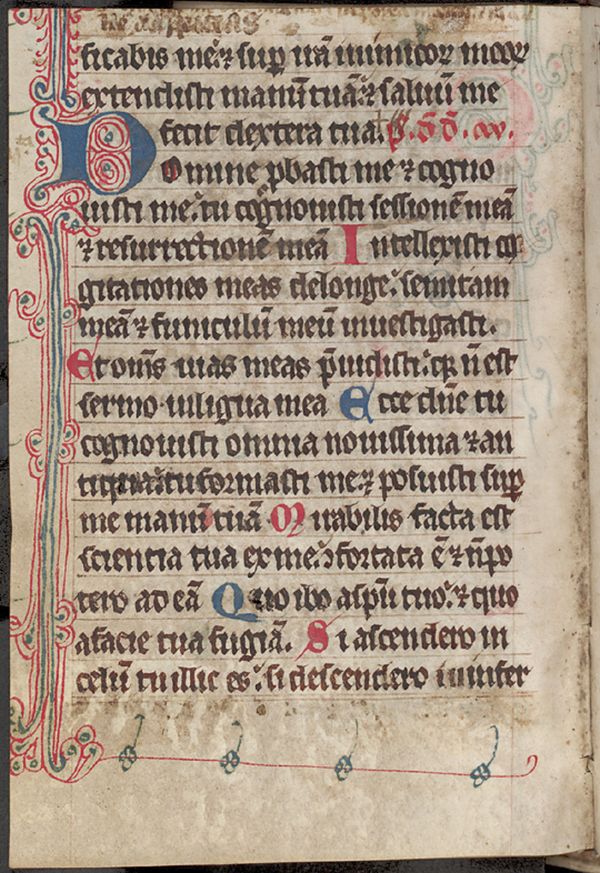 ficabis me: ⁊ sup irā inimicoꝝ meoꝝ
extendisti manū tuā: ⁊ saluū me
fecit dextera tua. p̄. d̄d̄. 
Domine ꝓbasti me ⁊ cogno
uisti me: tu cognouisti sessionē meā
⁊ resurrectionē meā Intellexisti co
gitationes meas delonge: semitam
meā ⁊ funiculū meū inuestigasti.
Et om̄s uias meas p̄uidisti: qꝛ nō est
sermo in ligua mea Ecce dn̄e tu
cognouisti omnia nouissima ⁊ an
tiqua: tu formasti me: ⁊ posuisti sup
me manū tuā Mirabilis facta est
scientia tua ex me: ꝯfortata ē ⁊ n̄ po
tero ad eā Quo ibo a spū tuo: ⁊ quo
a facie tua fugiā. Si ascendero in
celū tu illic es: si descendero in infer